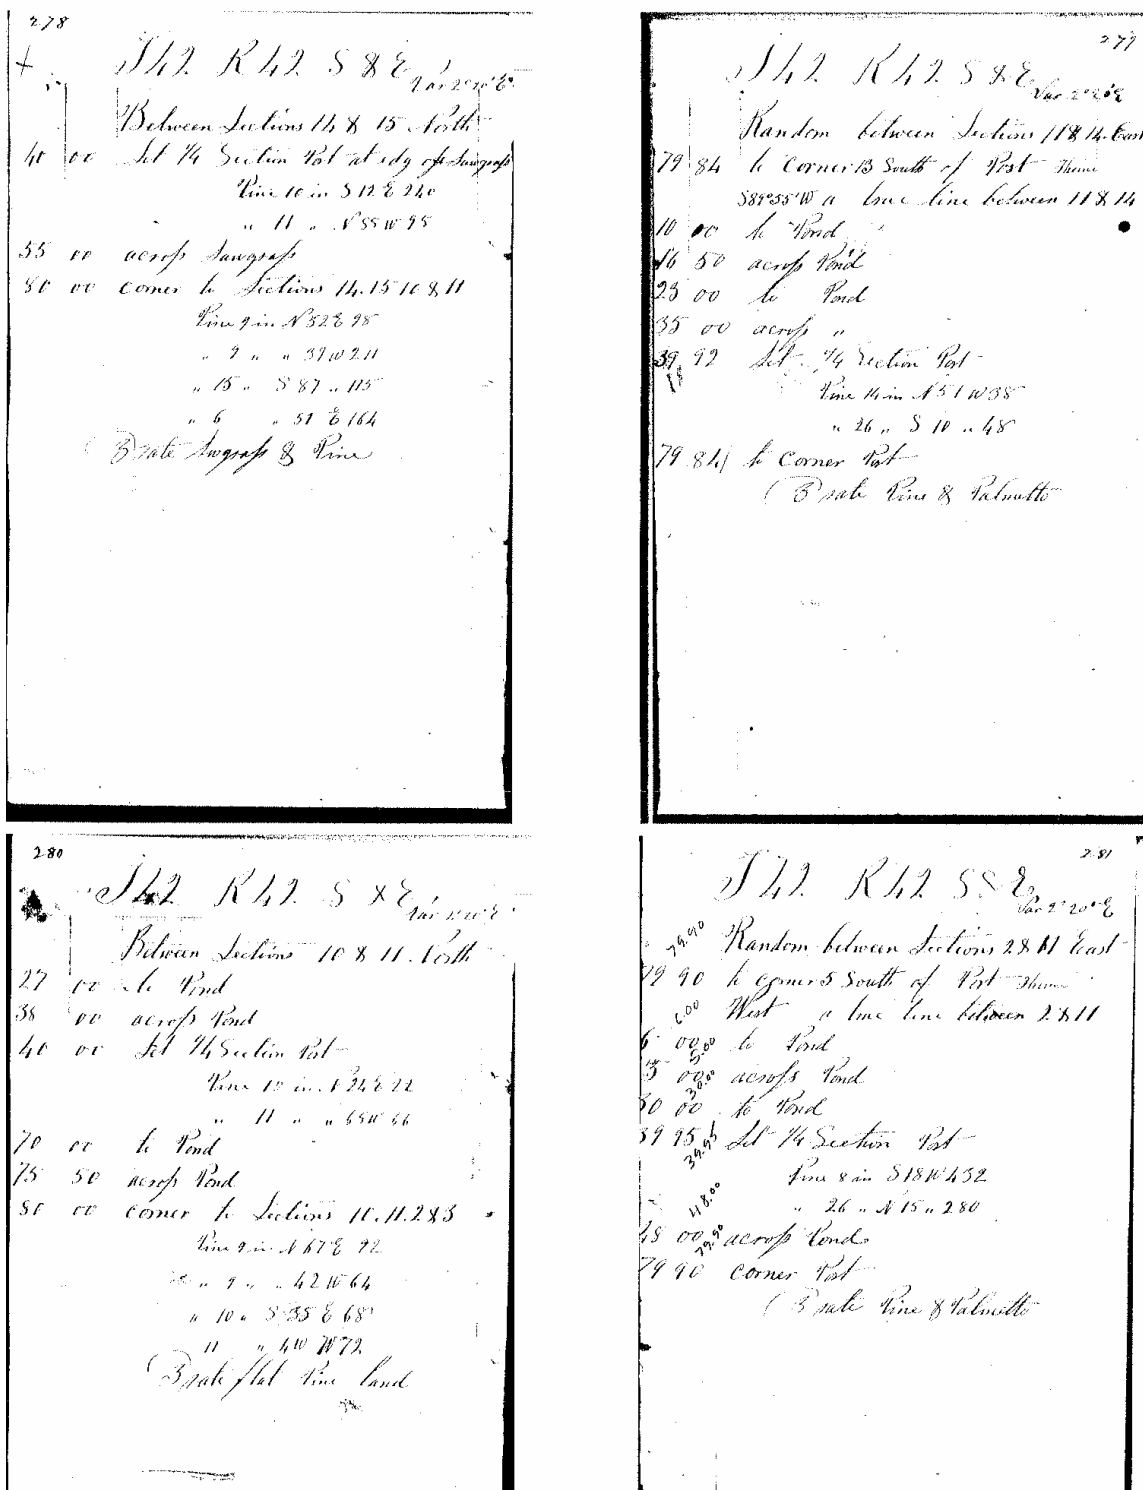 278
T42 R42 S & E
Var 2°20'E
Between Sections 14 & 15 North
40 00 Set 1/4 Section Post at edg of Sawgrass
Pine 10 in S 12 E 240
" 11 " N 55 W 95
55 00 across Sawgrass
80 00 corner to Sections 14.15.10 & 11
Pine 9 in N 52 E 98
" 9 " " 39 W 211
" 15 " S 87 " 115
" 6 " 51 E 164
3 rate Swgrass & Pine
279
T42 R42 S & E
Var 2°20'E
Random between Sections 11 & 14 East
79 84 to Corner 13 South of Post Thence
S89°55'W a true line between 11 & 14
10 00 to Pond
16 50 across Pond
23 00 to Pond
35 00 across "
39 92 Set 1/4 Section Post
Pine 14 in N 51 W 38
" 26 " S 10 " 48
79 84 to Corner Post
3 rate Pine & Palmetto
280
T42 R42 S & E
Var 2°20'E
Between Sections 10 & 11 North
27 00 to Pond
38 00 across Pond
40 00 Set 1/4 Section Post
Pine 12 in N 24 E 22
" 11 " " 65 W 66
70 00 to Pond
75 50 across Pond
80 00 corner to Sections 10.11.2 & 3
Pine 9 in N 67 E 92
" 9 " " 42 W 64
" 10 " S 35 E 68
11 " 40 W 72
3 rate flat Pine land
281
T42 R42 S & E
Var 2°20'E
79.90
Random between Sections 2 & 11 East
79 90 to corner 5 South of Post Thence
6.00
West a true line between 2 & 11
6 00 to Pond
5.00
5 00 across Pond
30.00
30 00 to Pond
39 95 Set 1/4 Section Post
39.95
Pine 8 in S 18 W 432
" 26 " N 15 " 280
48.00
48 00 across Pond
79.90
79 90 corner Post
3 rate Pine & Palmetto